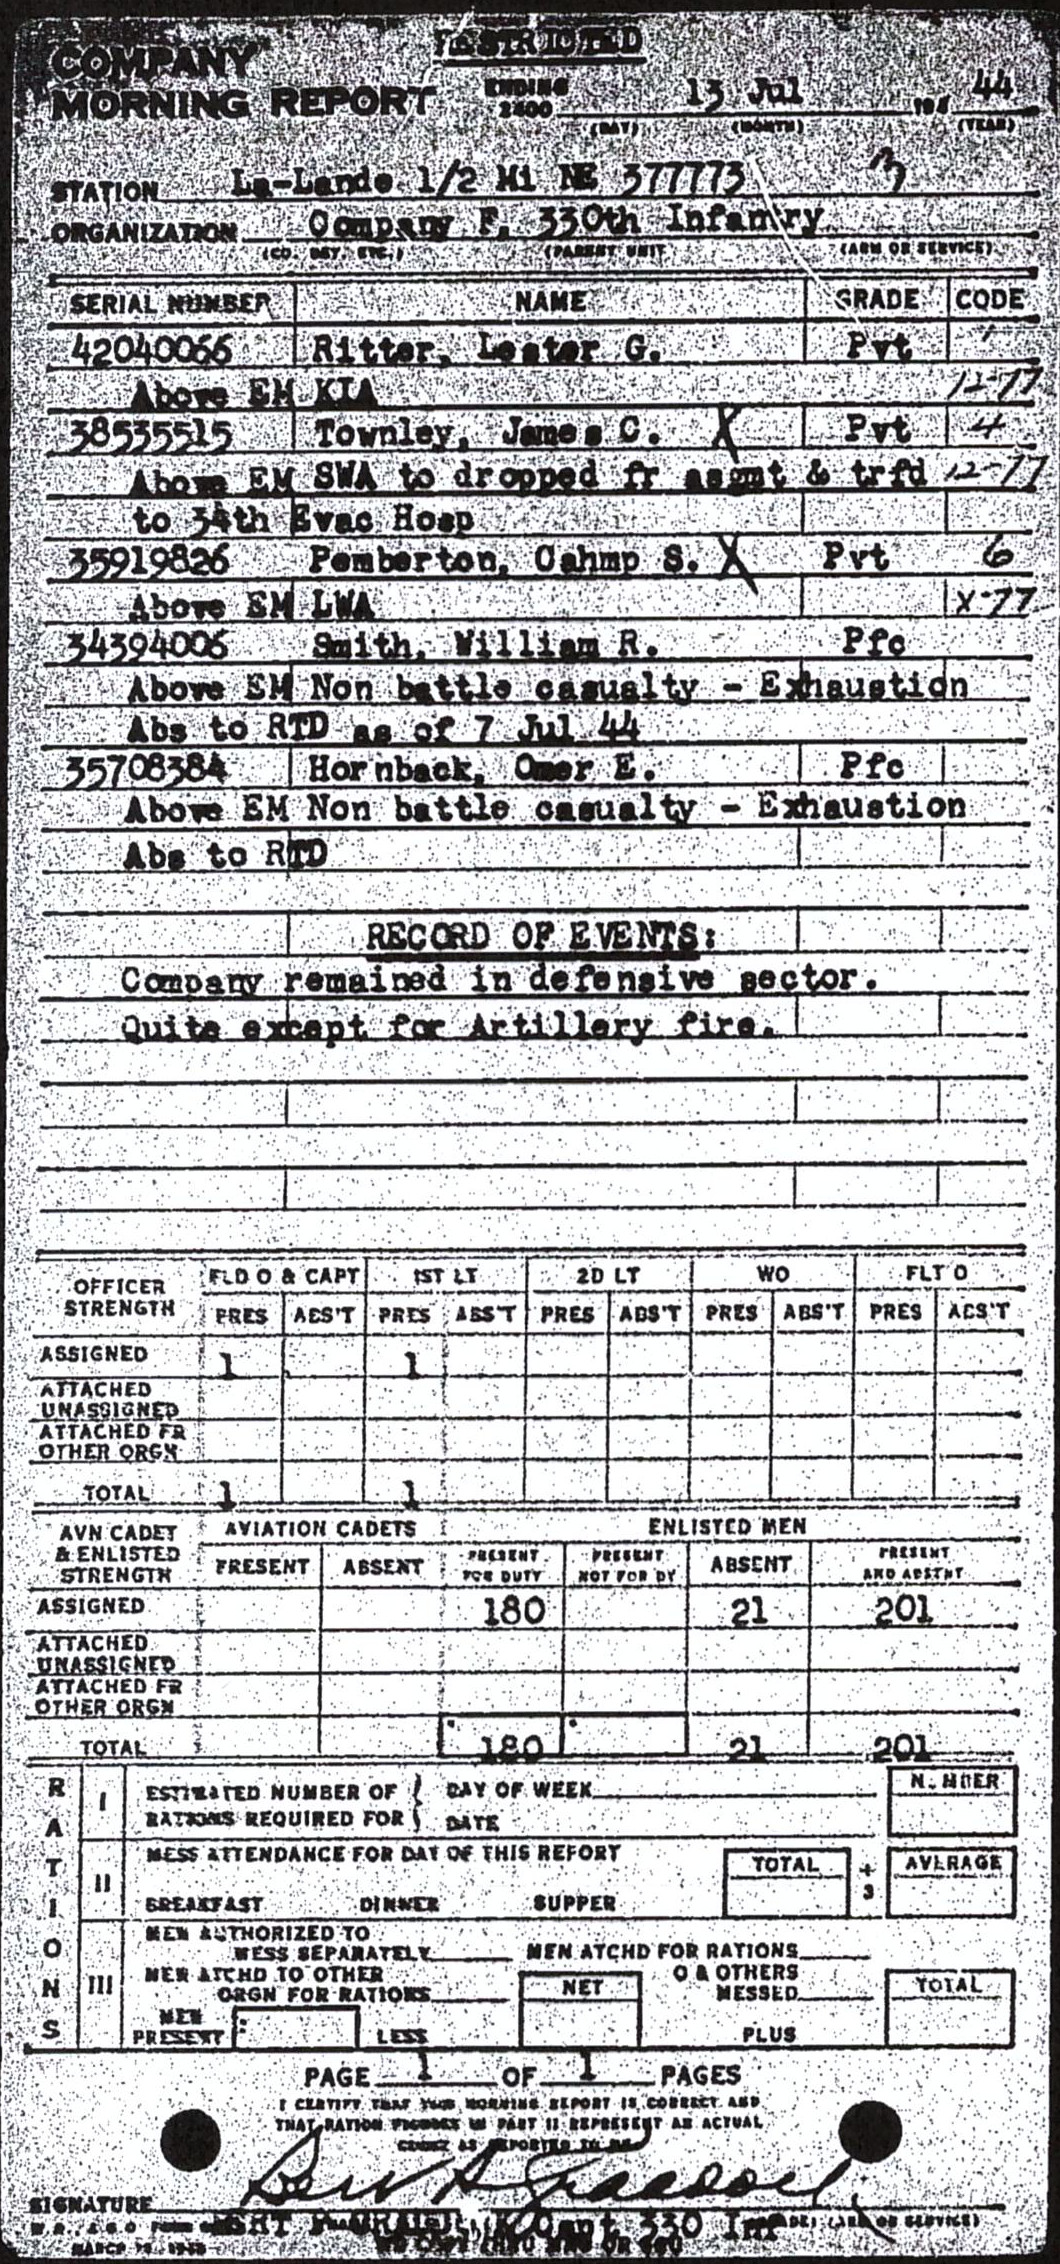 RESTRICTED
COMPANY
MORNING REPORT ENDING 2400 13 Jul 194 44
(DAY) (MONTH) (YEAR)
STATION La-Lande 1/2 Mi NE 377773 3
ORGANIZATION Company F, 330th Infantry
(CO. DET. ETC.) (PARENT UNIT (ARM OR SERVICE)
SERIAL NUMBER NAME GRADE CODE
42040066 Ritter, Lester G. Pvt
Above EM KIA 12-77
38535515 Townley, James C. X Pvt 4
Above EM SWA to dropped fr asgmt & trfd 12-77
to 34th Evac Hosp
35919826 Pemberton, Cahmp S. X Pvt 6
Above EM LWA X-77
34394006 Smith, William R. Pfc
Above EM Non battle casualty - Exhaustion
Abs to RTD as of 7 Jul 44
35708384 Hornback, Omer E. Pfc
Above EM Non battle casualty - Exhaustion
Abs to RTD
RECORD OF EVENTS:
Company remained in defensive sector.
Quite except for Artillery fire.
OFFICER STRENGTH FLD O & CAPT 1ST LT 2D LT WO FLT O
PRES ABS'T PRES ABS'T PRES ABS'T PRES ABS'T PRES ABS'T
ASSIGNED 1 1
ATTACHED UNASSIGNED
ATTACHED FR OTHER ORGN
TOTAL 1 1
AVN CADET & ENLISTED STRENGTH AVIATION CADETS ENLISTED MEN
PRESENT ABSENT PRESENT FOR DUTY PRESENT NOT FOR DY ABSENT PRESENT AND ABSENT
ASSIGNED 180 21 201
ATTACHED UNASSIGNED
ATTACHED FR OTHER ORGN
TOTAL 180 21 201
RATIONS
I ESTIMATED NUMBER OF RATIONS REQUIRED FOR DAY OF WEEK DATE NUMBER
II MESS ATTENDANCE FOR DAY OF THIS REPORT TOTAL ÷ 3 AVERAGE
BREAKFAST DINNER SUPPER
III MEN AUTHORIZED TO MESS SEPARATELY MEN ATCHD FOR RATIONS
MEN ATCHD TO OTHER ORGN FOR RATIONS NET O & OTHERS MESSED TOTAL
MEN PRESENT LESS PLUS
PAGE 1 OF 1 PAGES
I CERTIFY THAT THIS MORNING REPORT IS CORRECT AND
THAT RATION FIGURES IN PART II REPRESENT AN ACTUAL
COUNT AS REPORTED TO ME
SIGNATURE
Capt 330 Inf (ARM OR SERVICE)